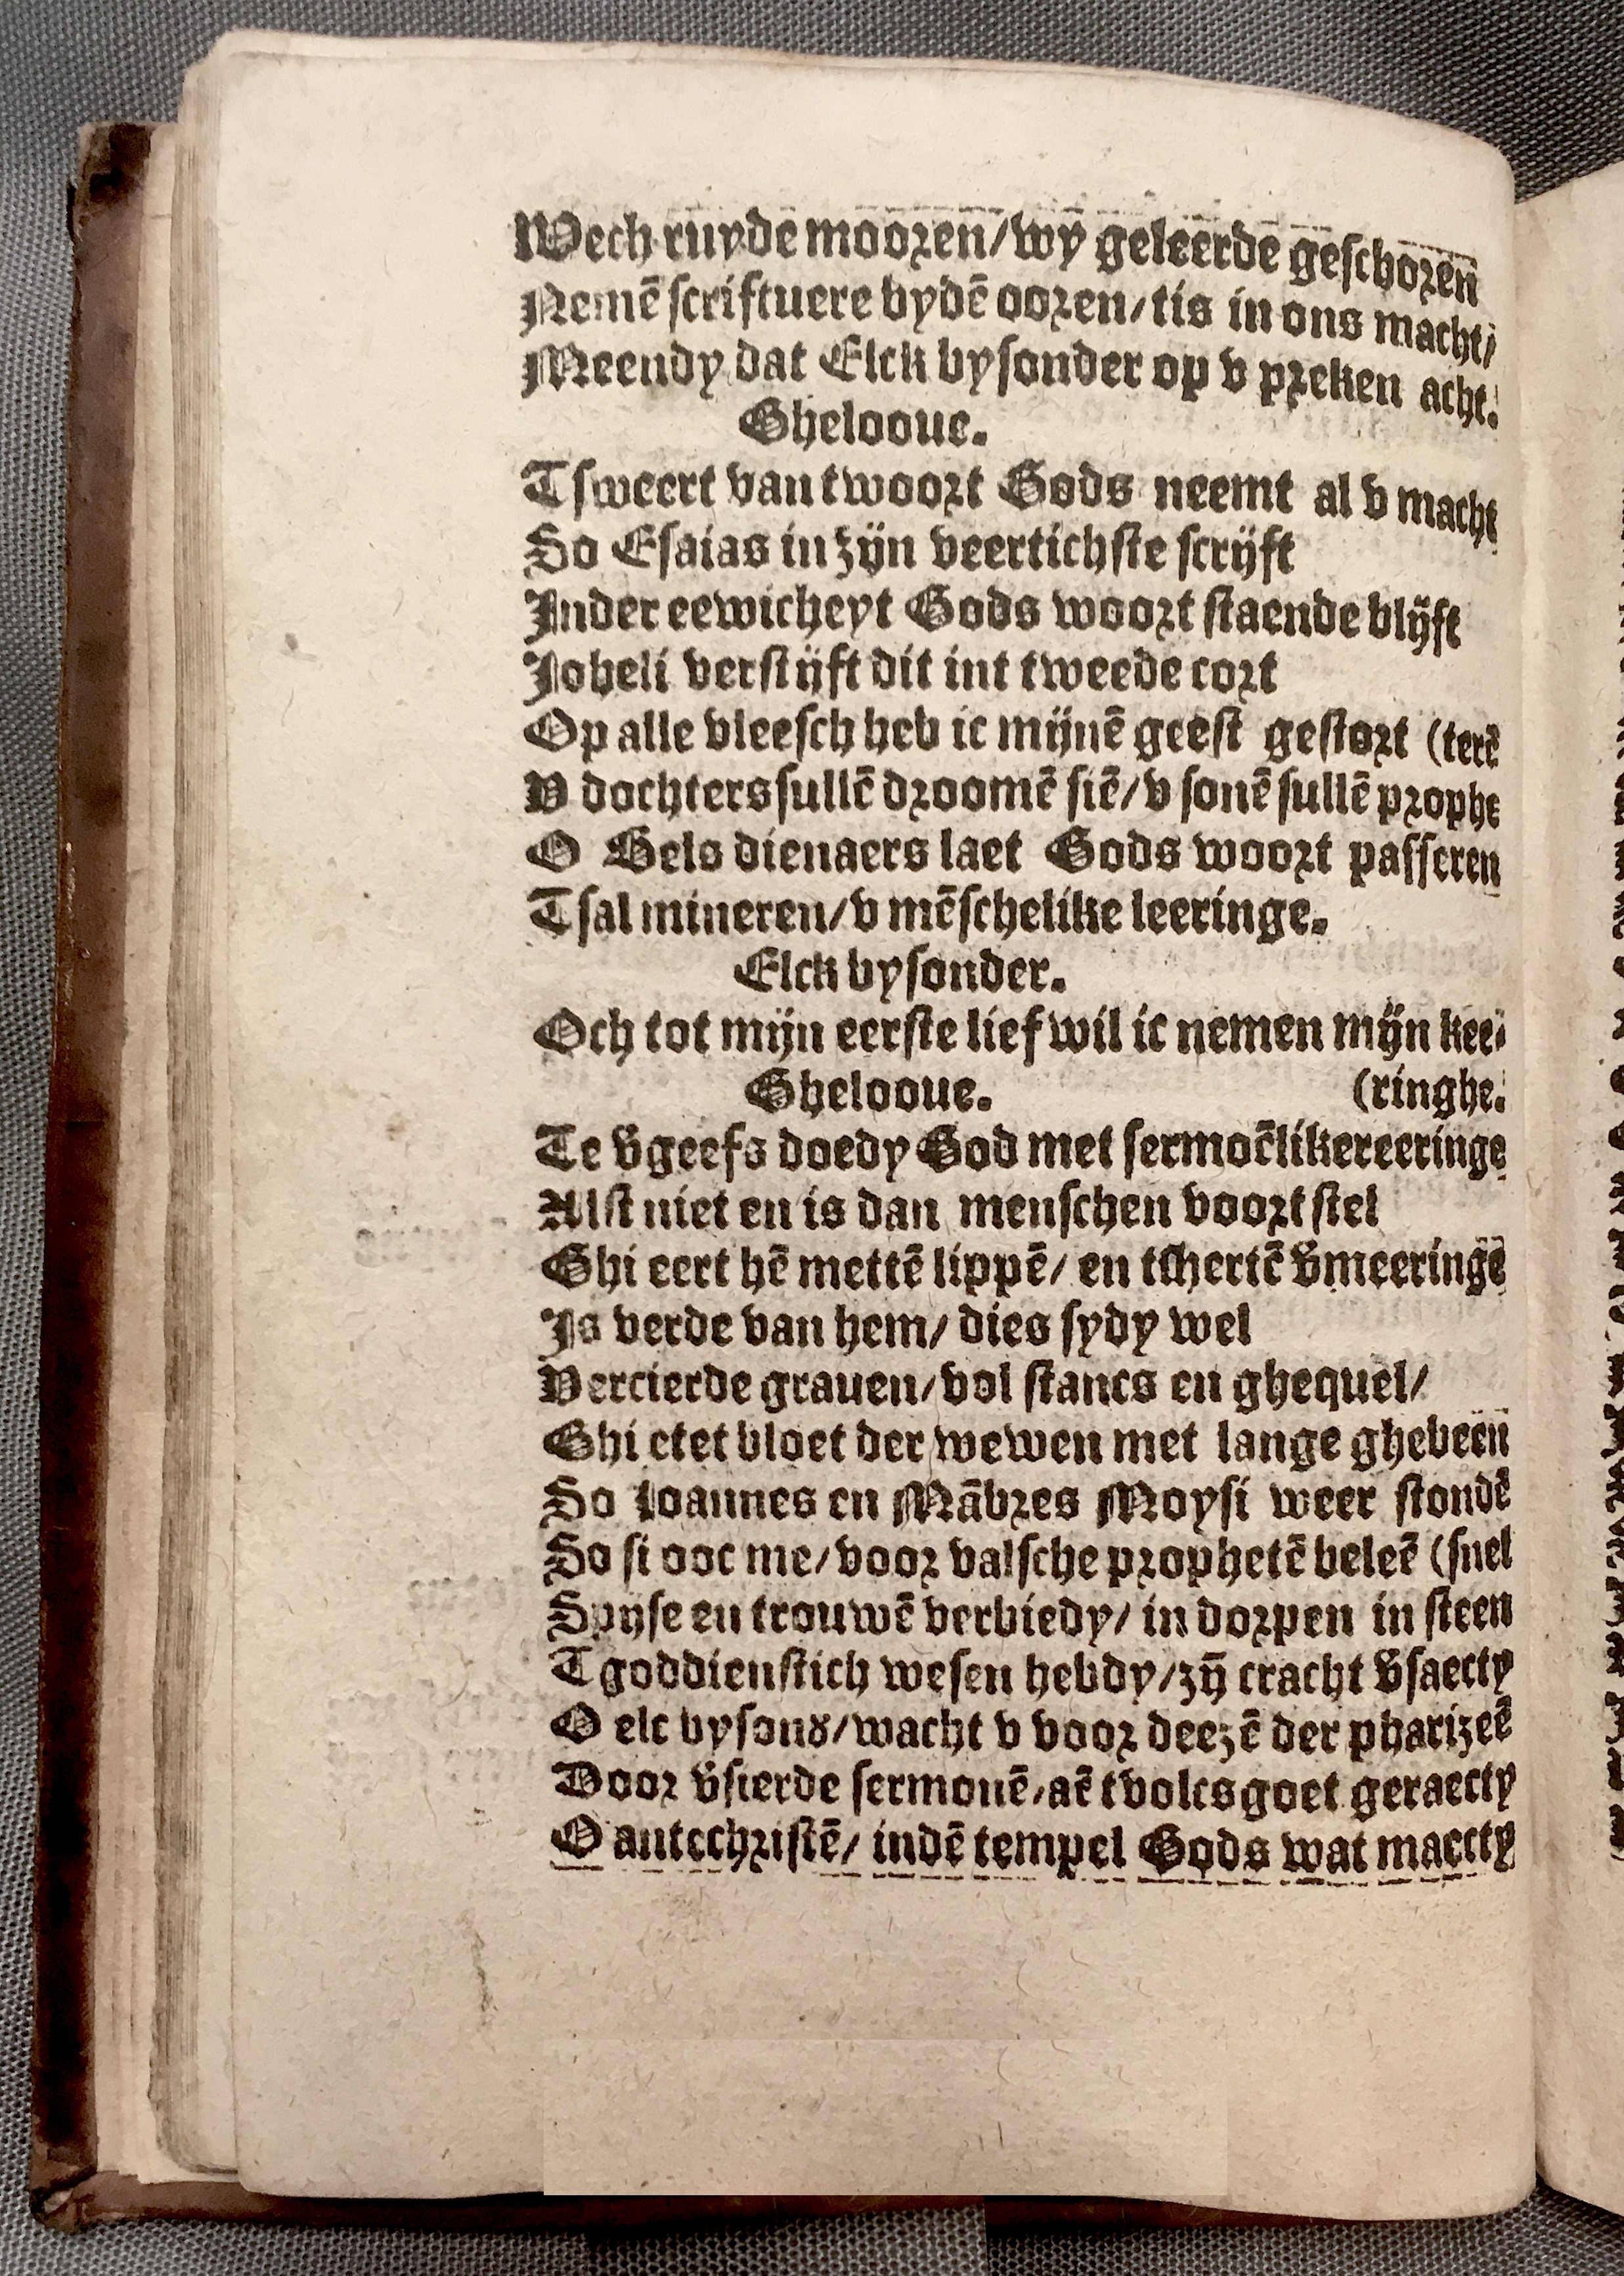 Wech ruyde mooren/wy geleerde geschoren
Nemē scriftuere bydē ooren/tis in ons macht/
Meendy dat Elck bysonder op v preken acht.
Ghelooue.
Tsweert van twoort Gods neemt al v macht
So Esaias in zijn veertichste scrijft
Inder eewicheyt Gods woort staende blijft
Joheli verstijft dit int tweede cort
Op alle vleesch heb ic mijnē geest gestort (terē
V dochters sullē droomē siē/v sonē sullē prophe
O Bels dienaers laet Gods woort passeren
Tsal mineren/v mēschelike leeringe.
Elck bysonder.
Och tot mijn eerste lief wil ic nemen mijn kee-
Ghelooue. (ringhe.
Te v̄geefs doedy God met sermoēlikereeringe
Alst niet en is dan menschen voortstel
Ghi eert hē mettē lippē/ en tshertē v̄meeringe
Is verde van hem/ dies sydy wel
Vercierde grauen/vol stancs en ghequel/
Ghi etet bloet der wewen met lange ghebeen
So Joannes en Mābres Moysi weer stondē
So si ooc me/voor valsche prophetē beleē (snel
Spijse en trouwē verbiedy/ in dorpen in steen
Tgoddienstich wesen hebdy/zȳ cracht v̄saecty
O elc bysonꝺ/wacht v voor deezē der pharizeē
Door v̄sierde sermonē/aē tvolcsgoet geraecty
O antechristē/ indē tempel Gods wat maecty